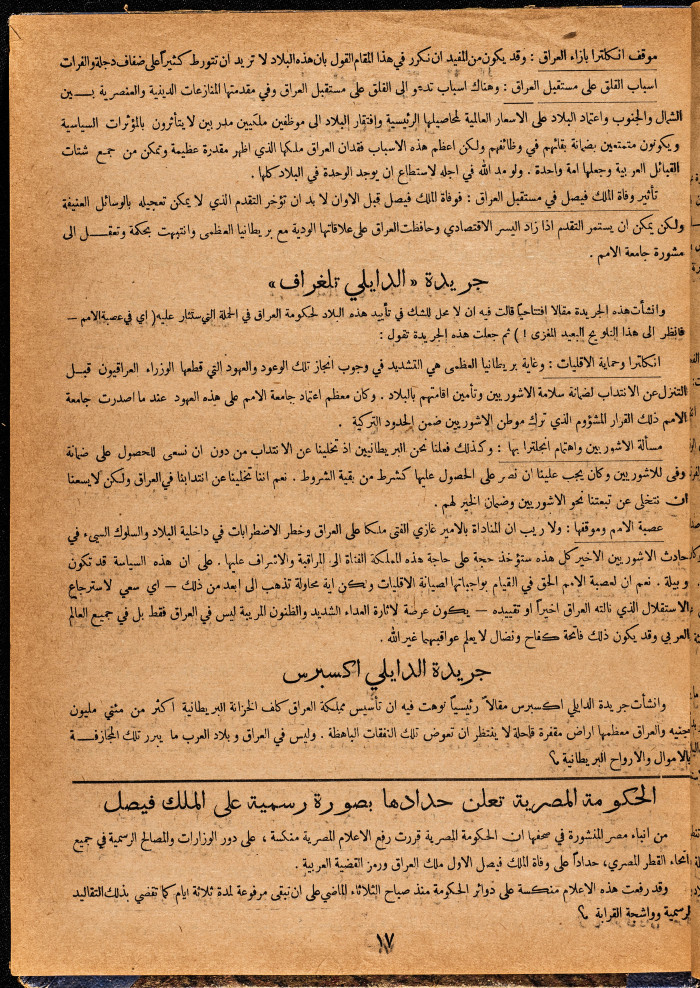 موقف انكلترا بازاء العراق : وقد يكون من المفيد ان نكرر في هذا المقام القول بان هذه البلاد لا تريد ان تتورط كثيراً على ضفاف دجلة والفرات
اسباب القلق على مستقبل العراق : وهناك اسباب تدعو الى القلق على مستقبل العراق وفي مقدمتها المنازعات الدينية والعنصرية بين
الشمال والجنوب واعتماد البلاد على الاسعار العالمية لمحاصيلها الرئيسية وافتقار البلاد الى موظفين ملكيين مدربين لا يتأثرون بالمؤثرات السياسية
ويكونون متمتعين بضمانة بقائهم في وظائفهم ولكن اعظم هذه الاسباب فقدان العراق ملكها الذي اظهر مقدرة عظيمة وتمكن من جمع شتات
القبائل العربية وجعلها امة واحدة . ولو مد الله في اجله لاستطاع ان يوجد الوحدة في البلاد كلها .
تأثير وفاة الملك فيصل في مستقبل العراق : فوفاة الملك فيصل قبل الاوان لا بد ان تؤخر التقدم الذي لا يمكن تعجيله بالوسائل العنيفة
ولكن يمكن ان يستمر التقدم اذا زاد اليسر الاقتصادي وحافظت العراق على علاقاتها الودية مع بريطانيا العظمى وانتبهت بحكمة وتعقل الى
مشورة جامعة الامم .
جريدة « الدايلي تلغراف »
وانشأت هذه الجريدة مقالا افتتاحياً قالت فيه ان لا محل للشك في تأييد هذه البلاد لحكومة العراق في الحملة التي ستثار عليه ( اي في عصبة الامم —
فانظر الى هذا التلويح البعيد المغزى ! ) ثم جعلت هذه الجريدة تقول :
انكلترا وحماية الاقليات : وغاية بريطانيا العظمى هي التشديد في وجوب انجاز تلك الوعود والعهود التي قطعها الوزراء العراقيون قبل
التنزل عن الانتداب لضمانة سلامة الاشوريين وتأمين اقامتهم بالبلاد . وكان معظم اعتماد جامعة الامم على هذه العهود عند ما اصدرت جامعة
الامم ذلك القرار المشؤوم الذي ترك موطن الاشوريين ضمن الحدود التركية .
مسألة الاشوريين واهتمام انجلترا بها : وكذلك فعلنا نحن البريطانيين اذ تخلينا عن الانتداب من دون ان نسعى للحصول على ضمانة
وفى للاشوريين وكان يجب علينا ان نصر على الحصول عليها كشرط من بقية الشروط . نعم اننا تخلينا عن انتدابنا في العراق ولكن لا يسعنا
ان نتخلى عن تبعتنا نحو الاشوريين وضمان الخير لهم .
عصبة الامم وموقفها : ولا ريب ان المناداة بالامير غازي الفتى ملكا على العراق وخطر الاضطرابات في داخلية البلاد والسلوك السيء في
حادث الاشوريين الاخير كل هذه ستؤخذ حجة على حاجة هذه المملكة الفتاة الى المراقبة والاشراف عليها . على ان هذه السياسة قد تكون
وبيلة . نعم ان لعصبة الامم الحق في القيام بواجباتها لصيانة الاقليات ولكن اية محاولة تذهب الى ابعد من ذلك — اي سعي لاسترجاع
الاستقلال الذي نالته العراق اخيراً او تقييده — يكون عرضة لاثارة العداء الشديد والظنون المريبة ليس في العراق فقط بل في جميع العالم
العربي وقد يكون ذلك فاتحة كفاح ونضال لا يعلم عواقبهما غير الله .
جريدة الدايلي اكسبرس
وانشأت جريدة الدايلي اكسبرس مقالاً رئيسياً نوهت فيه ان تأسيس مملكة العراق كلف الخزانة البريطانية اكثر من مئتي مليون
جنيه والعراق معظمها اراض مقفرة قاحلة لا ينتظر ان تعوض تلك النفقات الباهظة . وليس في العراق وبلاد العرب ما يبرر تلك المجازفة
بالاموال والارواح البريطانية ؟
الحكومة المصرية تعلن حدادها بصورة رسمية على الملك فيصل
من انباء مصر المنشورة في صحفها ان الحكومة المصرية قررت رفع الاعلام المصرية منكسة ، على دور الوزارات والمصالح الرسمية في جميع
انحاء القطر المصري، حداداً على وفاة الملك فيصل الاول ملك العراق ورمز القضية العربية .
وقد رفعت هذه الاعلام منكسة على دوائر الحكومة منذ صباح الثلاثاء الماضي على ان تبقى مرفوعة لمدة ثلاثة ايام كما تقضي بذلك التقاليد
الرسمية وواشجة القرابة ؟
١٧